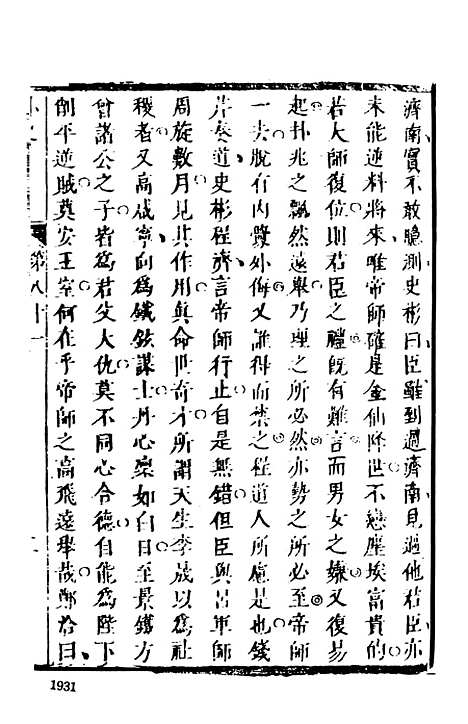 濟南實不敢臆測史彬曰臣雖到過濟南見過他君臣亦
未能逆料將來唯帝師確是金仙降世不戀塵埃富貴的
若大師復位則君臣之禮既有難言而男女之嫌又復易
起扑兆之飄然遠舉乃理之所必然亦勢之所必至帝師
一去脫有內釁外侮又誰料而禁之程道人所慮是也錢
芹奏道史彬程濟言帝師行止自是無錯但臣與呂軍師
周旋數月見其作用眞命世奇才所謂天生李晟以爲社
稷者又高咸寧向爲鐵鉉謀士丹心稟如白日至景鐵方
曾諸公之子皆爲君父大仇莫不同心合德自能爲陛下
削平逆賊奠安王室何在乎帝師之高飛遠舉哉鄭洽曰
第八十一
1931